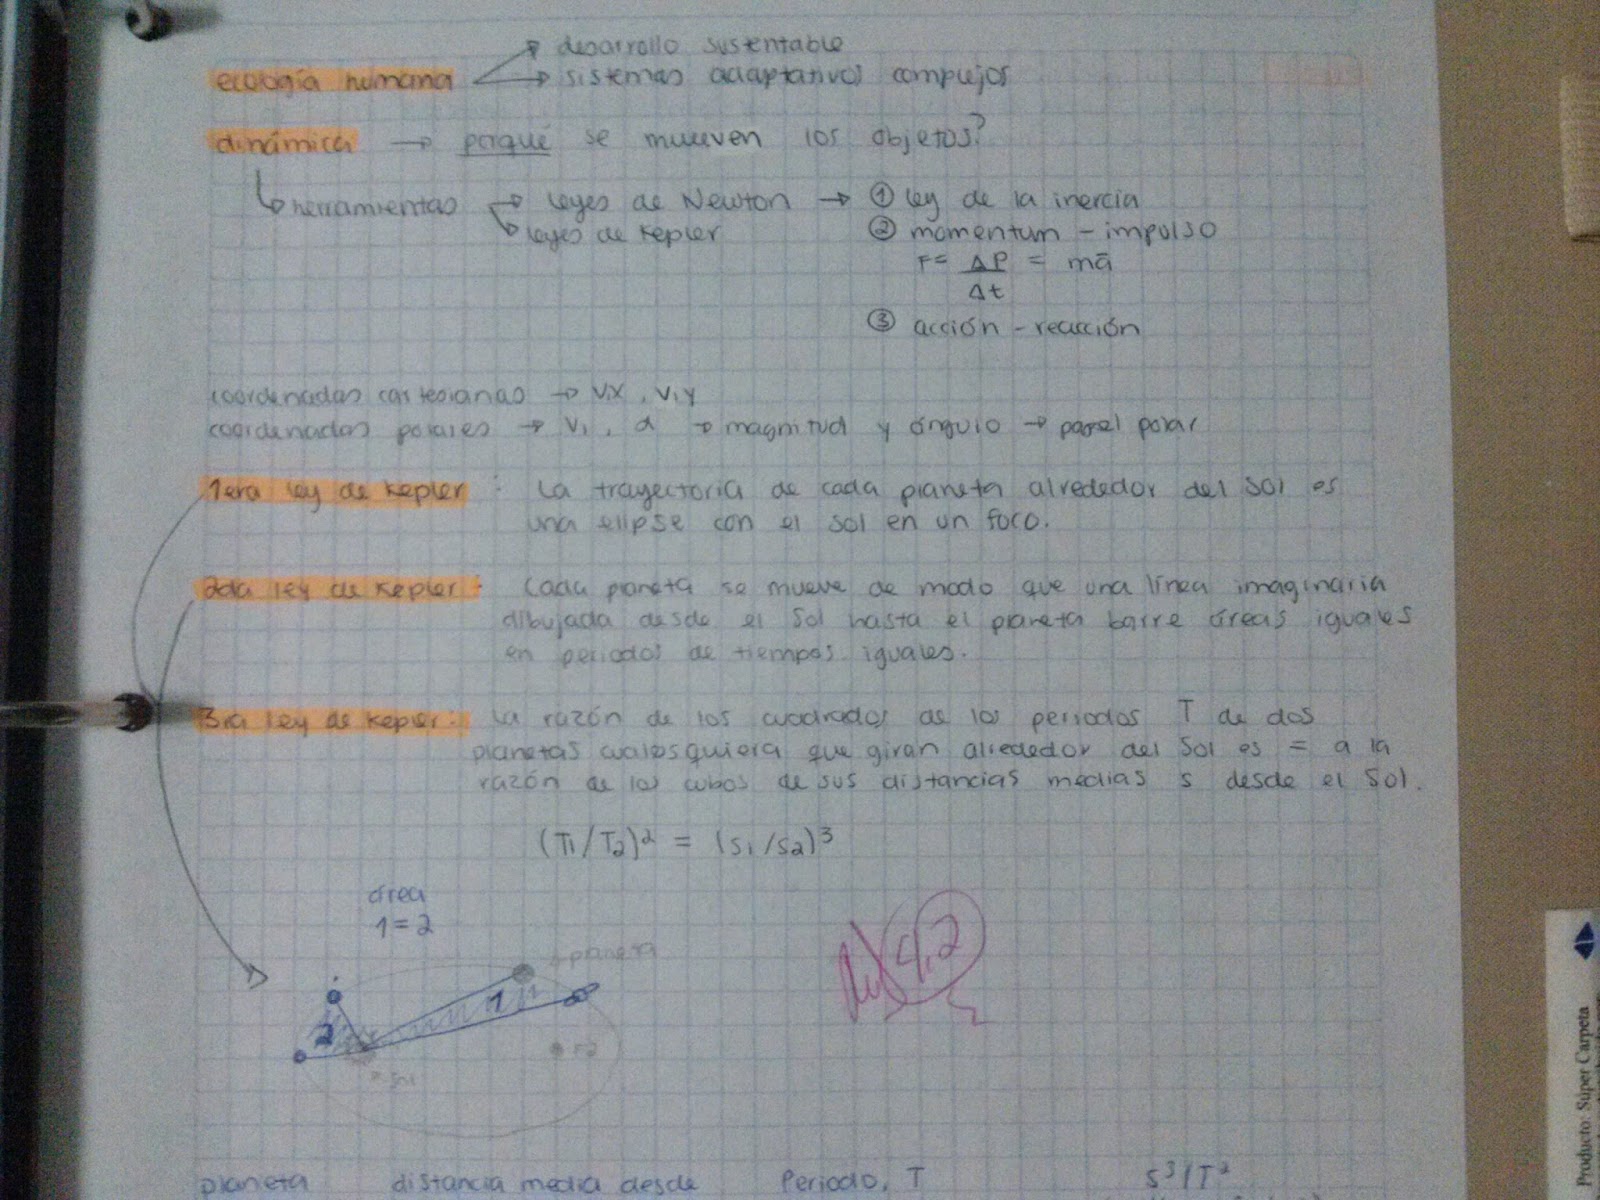 desarrollo sustentable
ecología humana → sistemas adaptativos complejos
dinámica → porqué se mueven los objetos?
herramientas → leyes de Newton → ① ley de la inercia
leyes de Kepler ② momentum - impulso
F = ΔP = mā
Δt
③ acción - reacción
coordenadas cartesianas → V1X, V1Y
coordenadas polares → V1, α → magnitud y ángulo → papel polar
1era ley de Kepler : La trayectoria de cada planeta alrededor del Sol es
una elipse con el sol en un foco.
2da ley de Kepler : Cada planeta se mueve de modo que una línea imaginaria
dibujada desde el Sol hasta el planeta barre áreas iguales
en periodos de tiempos iguales.
3ra ley de Kepler : La razón de los cuadrados de los periodos T de dos
planetas cualesquiera que giran alrededor del Sol es = a la
razón de los cubos de sus distancias medias s desde el Sol.
(T1/T2)² = (s1/s2)³
área
1=2
planeta
1
2
sol
4,2
planeta distancia media desde Periodo, T s³/T²
Producto: Súper Carpeta